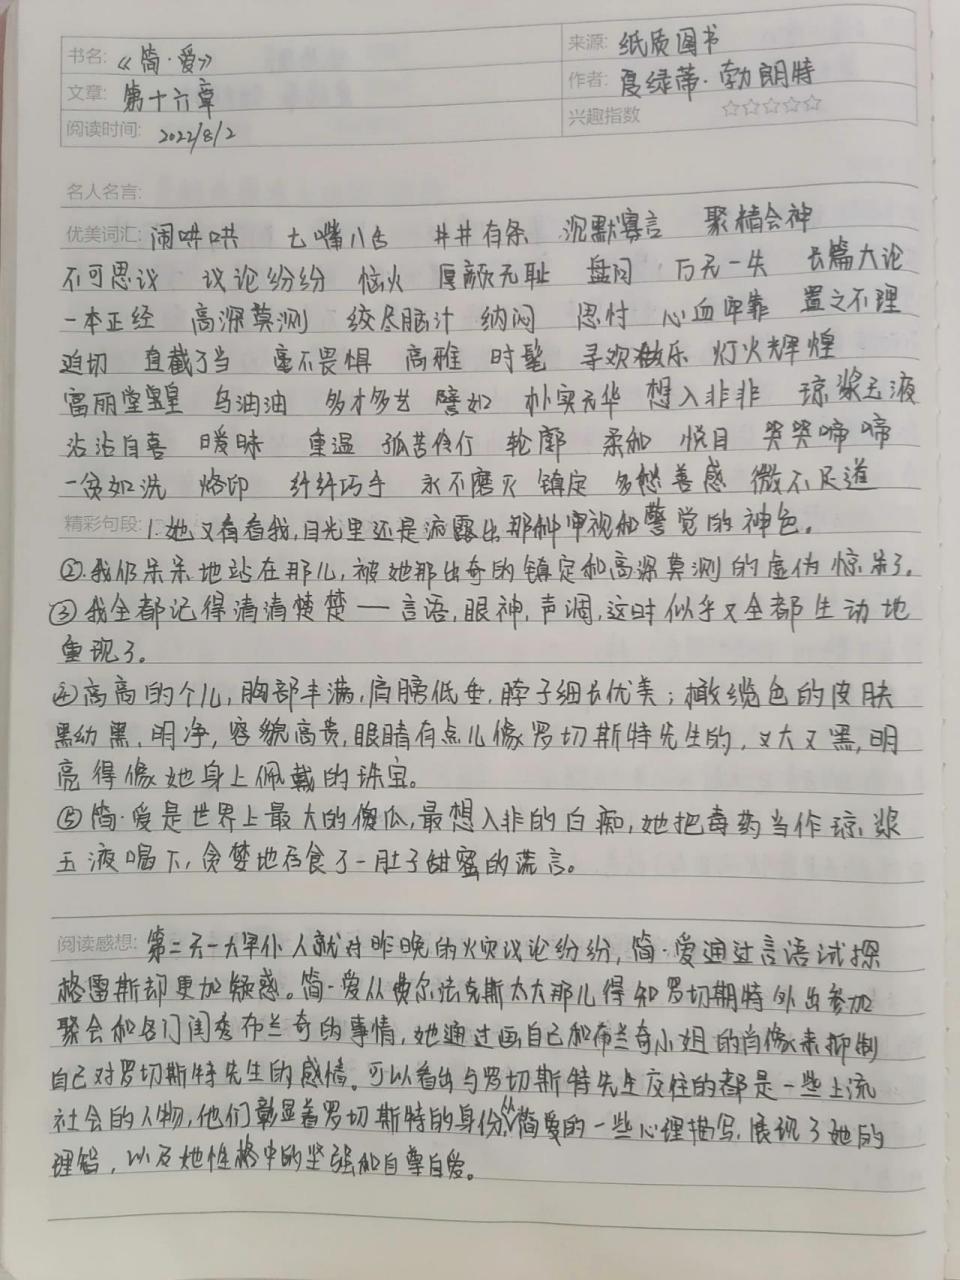 书名: 《简·爱》
来源: 纸质图书
文章: 第十六章
作者: 夏绿蒂·勃朗特
阅读时间: 2022/8/2
兴趣指数 ☆☆☆☆☆
名人名言:
优美词汇: 闹哄哄 七嘴八舌 井井有条 沉默寡言 聚精会神
不可思议 议论纷纷 恼火 厚颜无耻 盘问 万无一失 长篇大论
一本正经 高深莫测 绞尽脑汁 纳闷 思忖 心血 置之不理
迫切 直截了当 毫不畏惧 高雅 时髦 寻欢做乐 灯火辉煌
富丽堂皇 乌油油 多才多艺 譬如 朴实无华 想入非非 琼浆玉液
沾沾自喜 暧昧 重温 孤苦伶仃 轮廓 柔和 悦目 哭哭啼啼
一贫如洗 烙印 纤纤巧手 永不磨灭 镇定 多愁善感 微不足道
精彩句段: 1.她又看看我,目光里还是流露出那种审视和警觉的神色。
②.我仍呆呆地站在那儿,被她那出奇的镇定和高深莫测的虚伪惊呆了。
③我全都记得清清楚楚——言语,眼神,声调,这时似乎又全都生动地
重现了。
④高高的个儿,胸部丰满,肩膀低垂,脖子细长优美;橄榄色的皮肤
黝黑,明净,容貌高贵,眼睛有点儿像罗切斯特先生的,又大又黑,明
亮得像她身上佩戴的珠宝。
⑤简·爱是世界上最大的傻瓜,最想入非的白痴,她把毒药当作琼浆
玉液喝下,贪婪地吞食了一肚子甜蜜的谎言。
阅读感想: 第二天一大早仆人就对昨晚的火灾议论纷纷,简·爱通过言语试探
格雷斯却更加疑惑。简·爱从费尔法克斯太太那儿得知罗切期特外出参加
聚会和各门闺秀布兰奇的事情,她通过画自己和布兰奇小姐的肖像来抑制
自己对罗切斯特先生的感情。可以看出与罗切斯特先生交往的都是一些上流
社会的人物,他们彰显着罗切斯特的身份。从简爱的一些心理描写,展现了她的
理智,以及她性格中的坚强和自尊自爱。